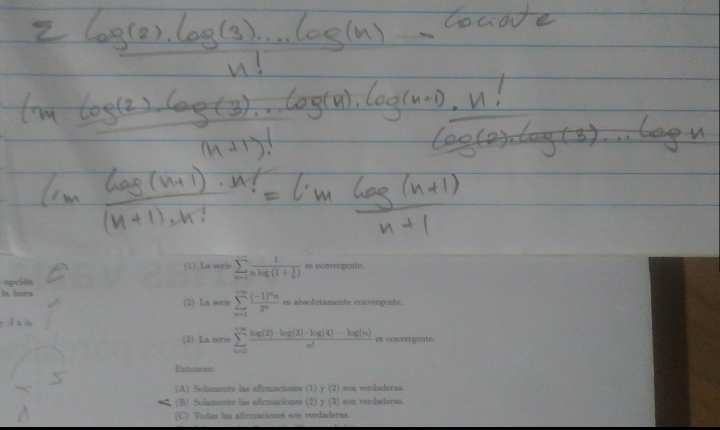 Σ log(2).log(3)....log(n) → Cociente
n!
lim log(2).log(3)...log(n).log(n+1) . n!
(n+1)! log(2).log(3)...log n
lim log(n+1) . n! = lim log(n+1)
(n+1).n! n+1
opción
la hora
(1) La serie ∑ 1 / n log(1 + 1/n) es convergente.
(2) La serie ∑ (−1)ⁿn / 3ⁿ es absolutamente convergente.
(3) La serie ∑ log(2) · log(3) · log(4) ··· log(n) / n! es convergente.
Entonces:
(A) Solamente las afirmaciones (1) y (2) son verdaderas.
(B) Solamente las afirmaciones (2) y (3) son verdaderas.
(C) Todas las afirmaciones son verdaderas.